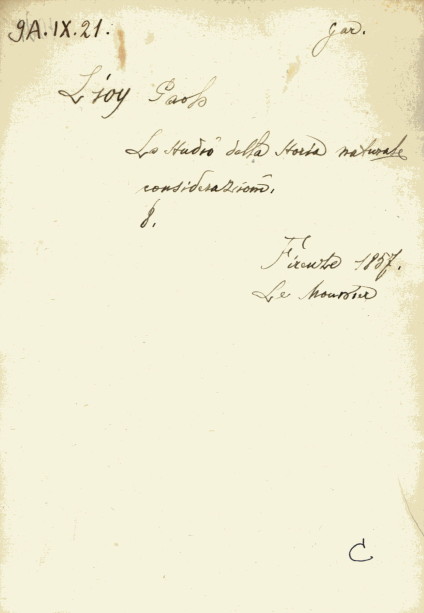 9A.IX.21.
Gar.
Lioy Paolo
Lo studio della storia naturale
considerazioni.
8.
Firenze 1857.
Le Monnier
C